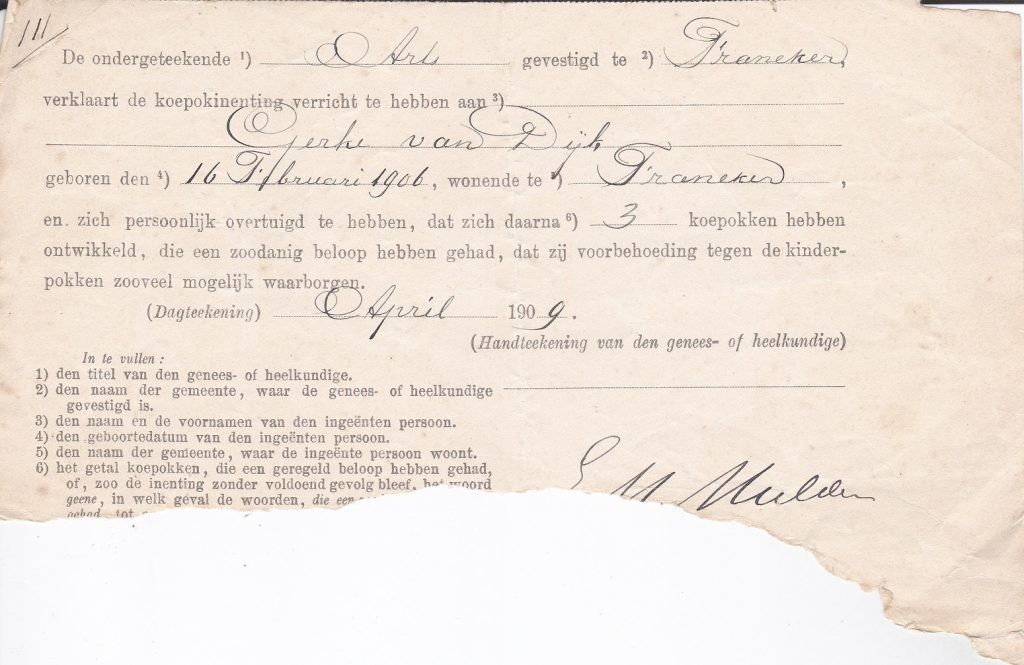 111
De ondergeteekende ¹) Arts gevestigd te ²) Franeker,
verklaart de koepokinenting verricht te hebben aan ³)
Gerke van Dijk
geboren den ⁴) 16 Februari 1906, wonende te ⁵) Franeker ,
en zich persoonlijk overtuigd te hebben, dat zich daarna ⁶) 3 koepokken hebben
ontwikkeld, die een zoodanig beloop hebben gehad, dat zij voorbehoeding tegen de kinder-
pokken zooveel mogelijk waarborgen.
(Dagteekening) April 1909.
(Handteekening van den genees- of heelkundige)
In te vullen :
1) den titel van den genees- of heelkundige.
2) den naam der gemeente, waar de genees- of heelkundige
gevestigd is.
3) den naam en de voornamen van den ingeënten persoon.
4) den geboortedatum van den ingeënten persoon.
5) den naam der gemeente, waar de ingeënte persoon woont.
6) het getal koepokken, die een geregeld beloop hebben gehad,
of, zoo de inenting zonder voldoend gevolg bleef, het woord
geene, in welk geval de woorden, die een
gehad, tot
Mulder